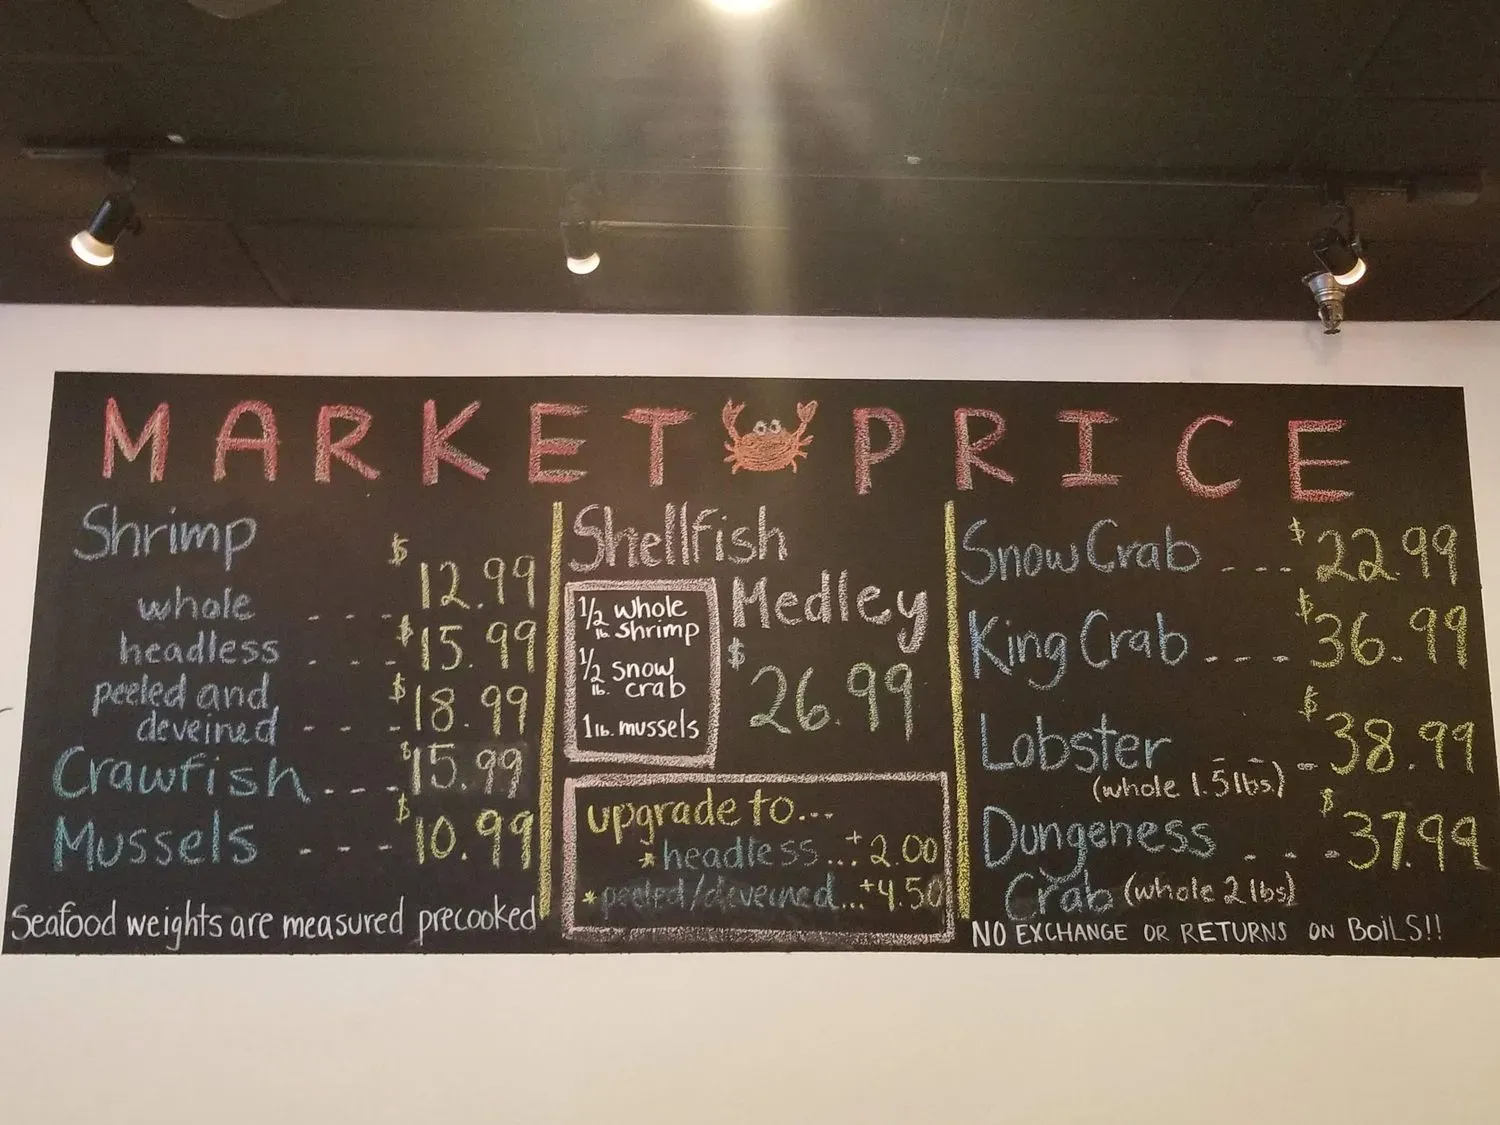 MARKET PRICE
Shrimp
whole - - - - $12.99
headless - - - - $15.99
peeled and
deveined - - - - $18.99
Crawfish - - - $15.99
Mussels - - - $10.99
Seafood weights are measured precooked
Shellfish
Medley
$26.99
1/2 lb. whole
shrimp
1/2 lb. snow
crab
1 lb. mussels
upgrade to...
*headless...+2.00
*peeled/deveined...+4.50
Snow Crab - - - - $22.99
King Crab - - - - $36.99
Lobster - - - $38.99
(whole 1.5 lbs.)
Dungeness - - - $37.99
Crab (whole 2 lbs)
NO EXCHANGE OR RETURNS ON BOiLS!!